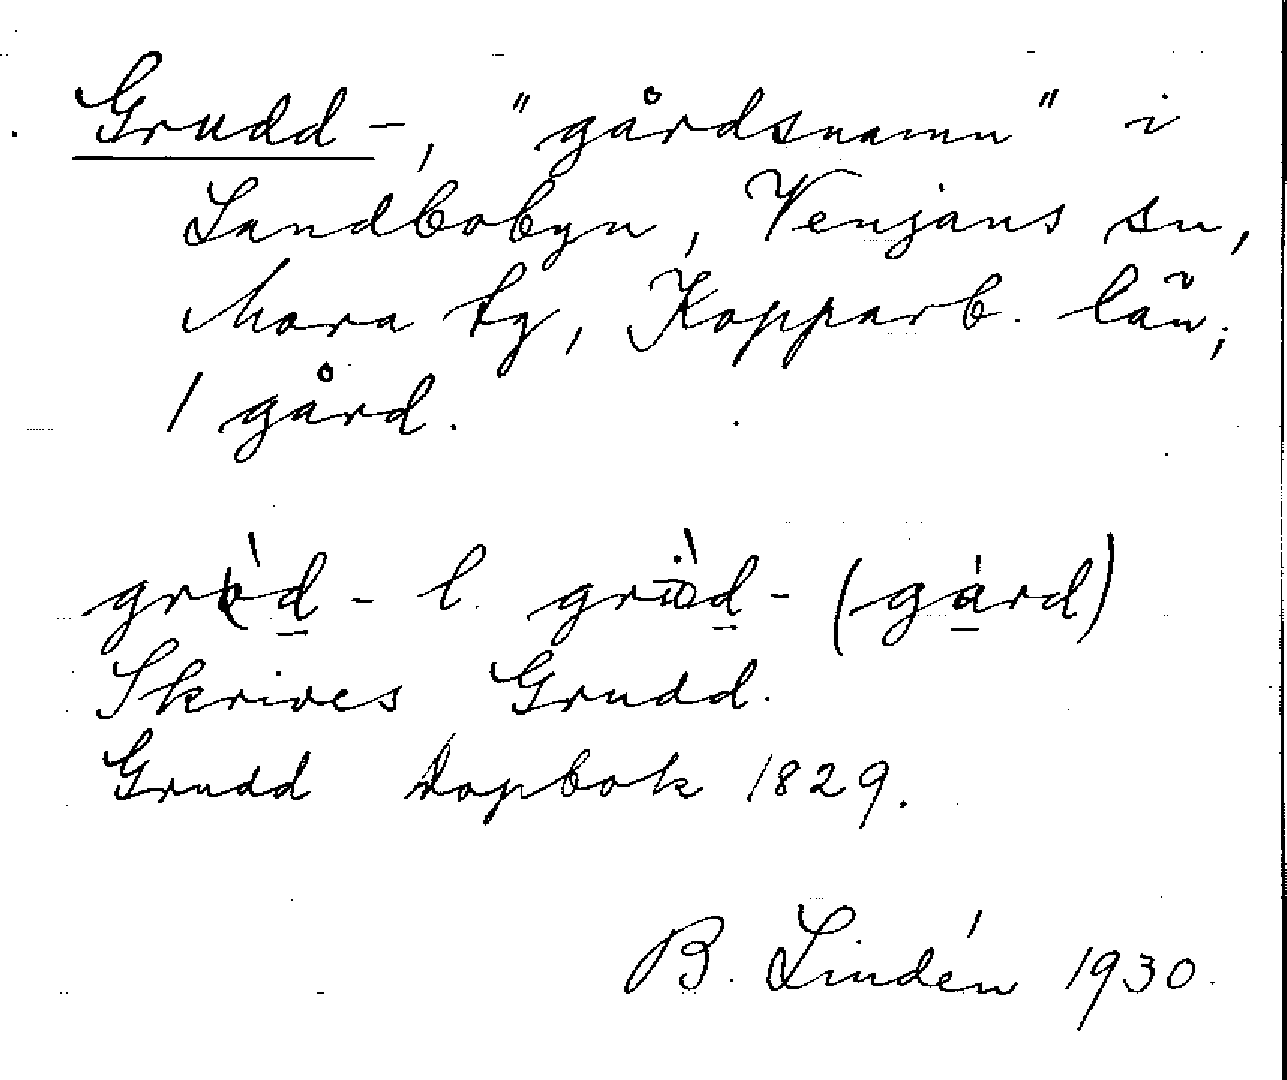 Grudd-, "gårdsnamn" i
Landbobyn, Venjans sn,
Mora tg, Kopparb. län;
1 gård.
l.
Skrives Grudd.
Grudd Dopbok 1829.
B. Lindén 1930.